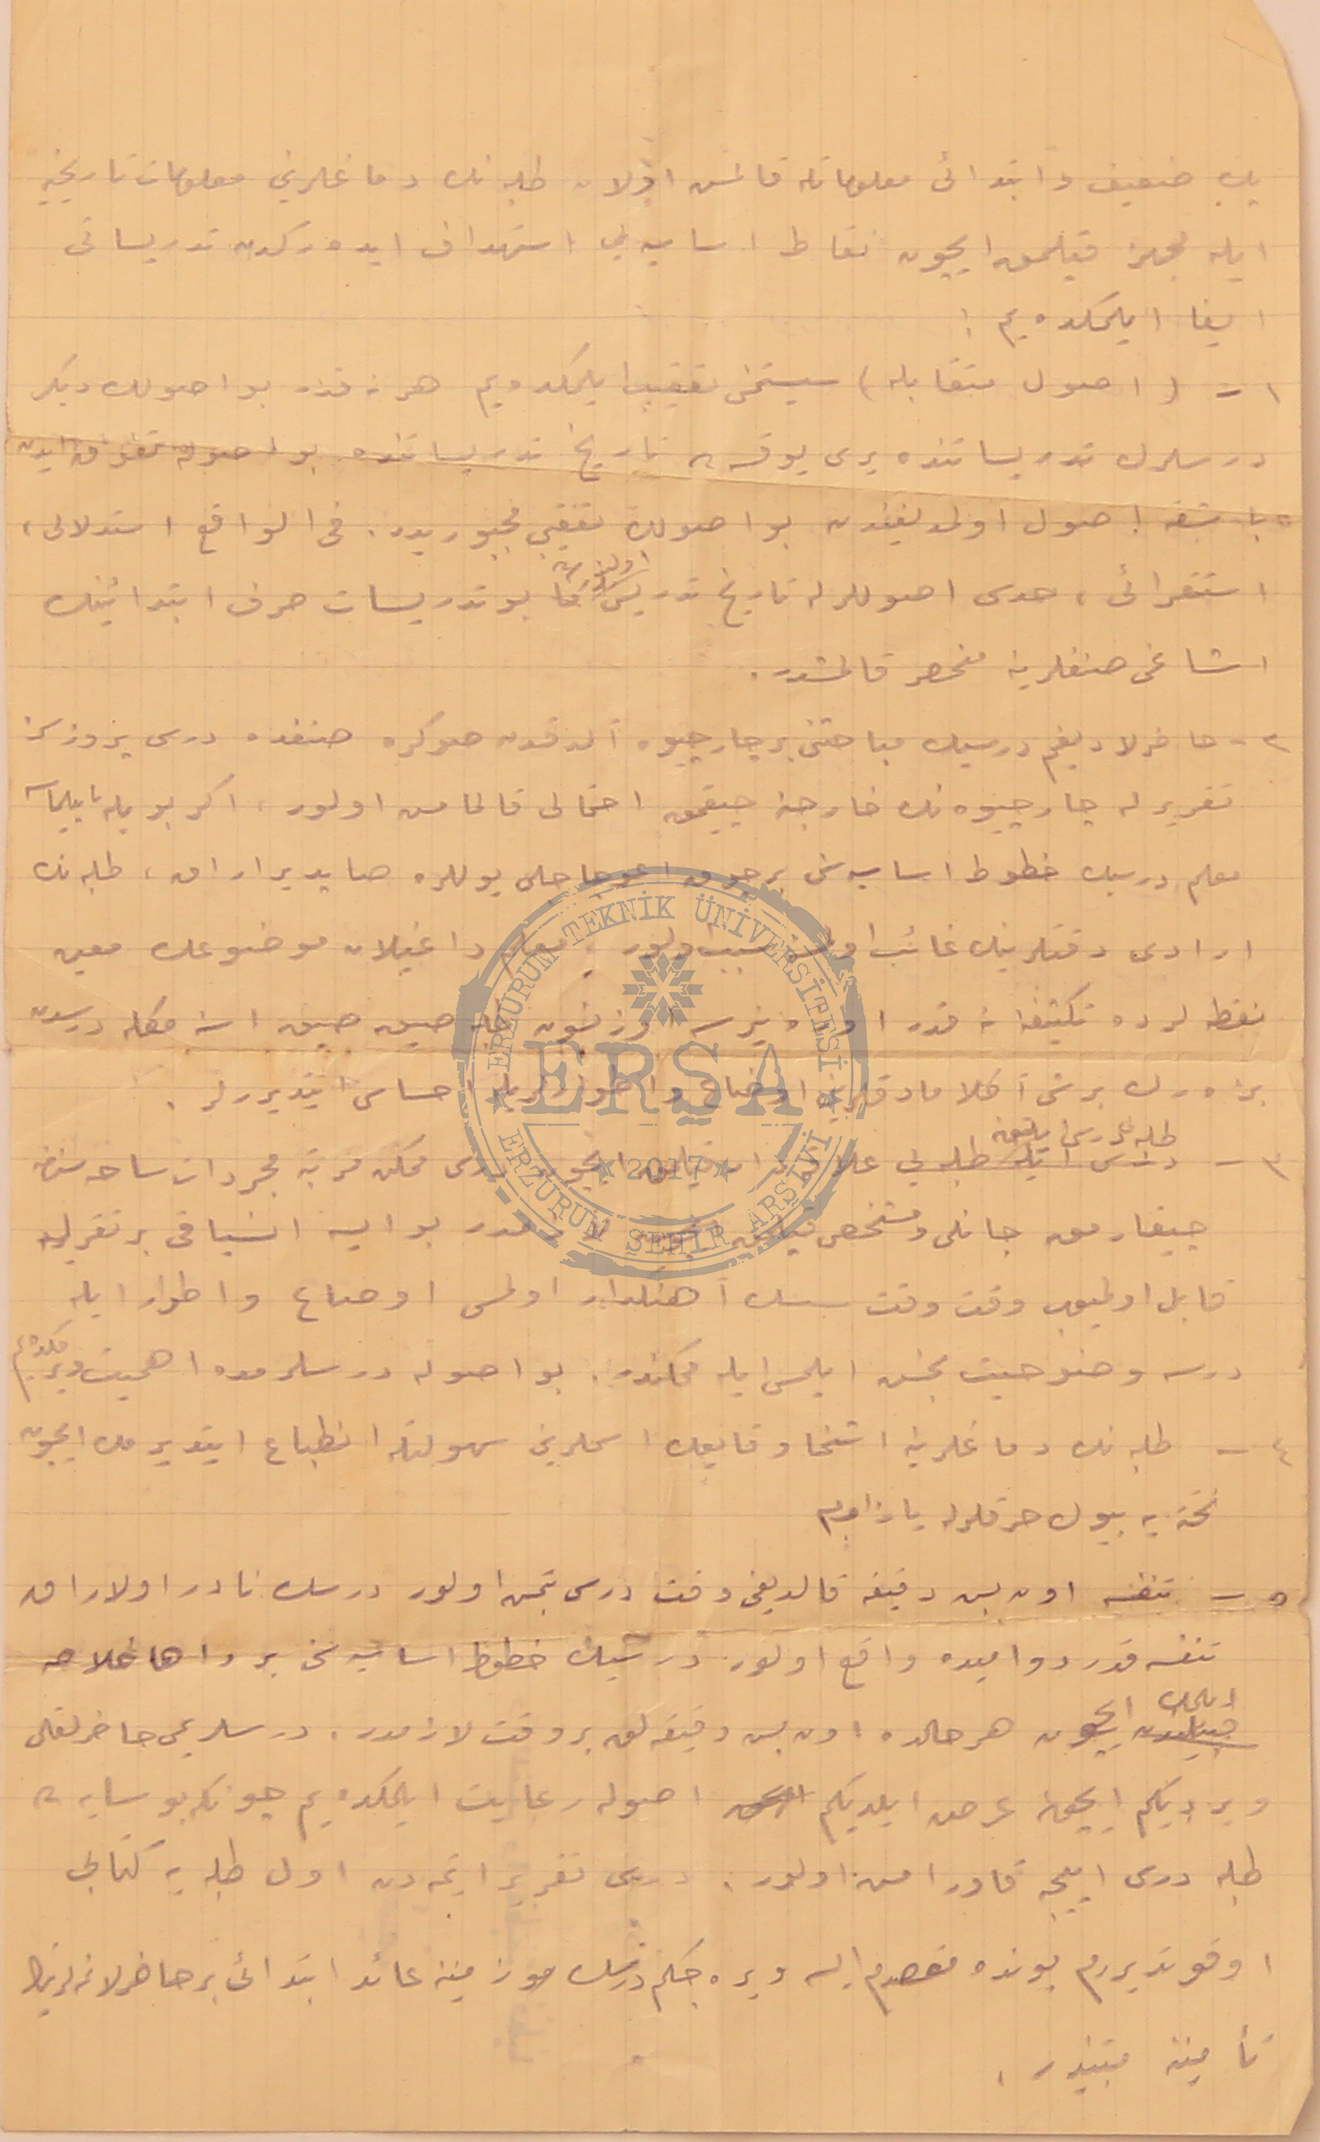 پك ضعيف و ابتدائى معلوماتله قالمش اولان طلبه نك دماغلرينى معلومات تاريخيه
ايله مجهز قيلمق ايچون نقاط اساسيه يى استهداف ايده رك تدريساتى
ايفا ايلمكده يم :
١ - ( اصول متقابله ) سيستمنى تعقيب ايلمكده يم هر نه قدر بو اصولك ديكر
درسلرك تدريساتنده يرى يوقسه ده تاريخ تدريساتنده بو اصوله تفوق ايدن
باشقه اصول اولمديغندن بو اصولك تعقيبى مجبوريدر . فى الواقع استدلالى ،
استقرائى ، حدسى اصوللرله تاريخ تدريس اولنورسه ده بو تدريسات صرف ابتدائينك
اشاغى صنفلرينه منحصر قالمشدر .
٢ - حاضرلاديغم درسك مباحثنى بر چارچيوه آلدقدن صوكره صنفده درسى
تقريرله چارچيوه نك خارجنه چيقمق احتمالى قالمامش اولور ، اكر بويله ياپيلمازسه
معلم درسك خطوط اساسيه سنى بر چوق اعوجاجلى يوللره صاپديراراق ، طلبه نك
ارادى دقتلرينك غائب اولمسنه سبب اولور . معلم داغيلان موضوعك معين
نقطه لرده تكثيفنه نه قدر اوزه نيرسه طلبه صيق صيق اسنه مكله درسدن
بزه رك بر شى آكلامادقلرينى اوضاع و اطوارلريله احساس ايتديررلر .
٣ - طلبه يى درسى ايله علاقه دار قيلمق ايچون درسى ممكن مرتبه مجردات ساحه سندن
چيقارمق جانلى و مشخص قيلمق لازمدر بو ايسه انسياقى بر تقرير ايله
قابل اولميوب وقت وقت سسك آهنكدار اولمسى اوضاع و اطوار ايله
درسه وضوحيت بخش ايلمسى ايله ممكندر . بو اصوله درسلرمده اهميت ويرمكده يم
٤ - طلبه نك دماغلرينه اشخاص وقايعك اسملرينى سهولتله انطباع ايتديرمك ايچون
تخته يه بيوك حرفلرله يازارم
٥ - تنفسه اون بش دقيقه قالديغى وقت درس بتمش اولور درسك نادر اولاراق
تنفسه قدر دواميده واقع اولور . درسك خطوط اساسيه سنى بر داها خلاصه
ايلمك ايچون هر حالده اون بش دقيقه لق بر وقت لازمدر . درسلريمى حاضرلقلى
ويرديكم ايچون عرض ايلديكم اصوله رعايت ايلمكده يم چونكه بو سايه ده
طلبه درسى اييجه قاورامش اولور . درسى تقرير ايتمه دن اول طلبه يه كتابى
اوقوتديريرم بونده مقصدم ايسه ويره جكم درسك زمينه عائد ابتدائى بر حاضرلانمه لرينك
تأميننه مبتنيدر .
ERZURUM TEKNİK ÜNİVERSİTESİ
ERŞA
2017
ERZURUM ŞEHİR ARŞİVİ